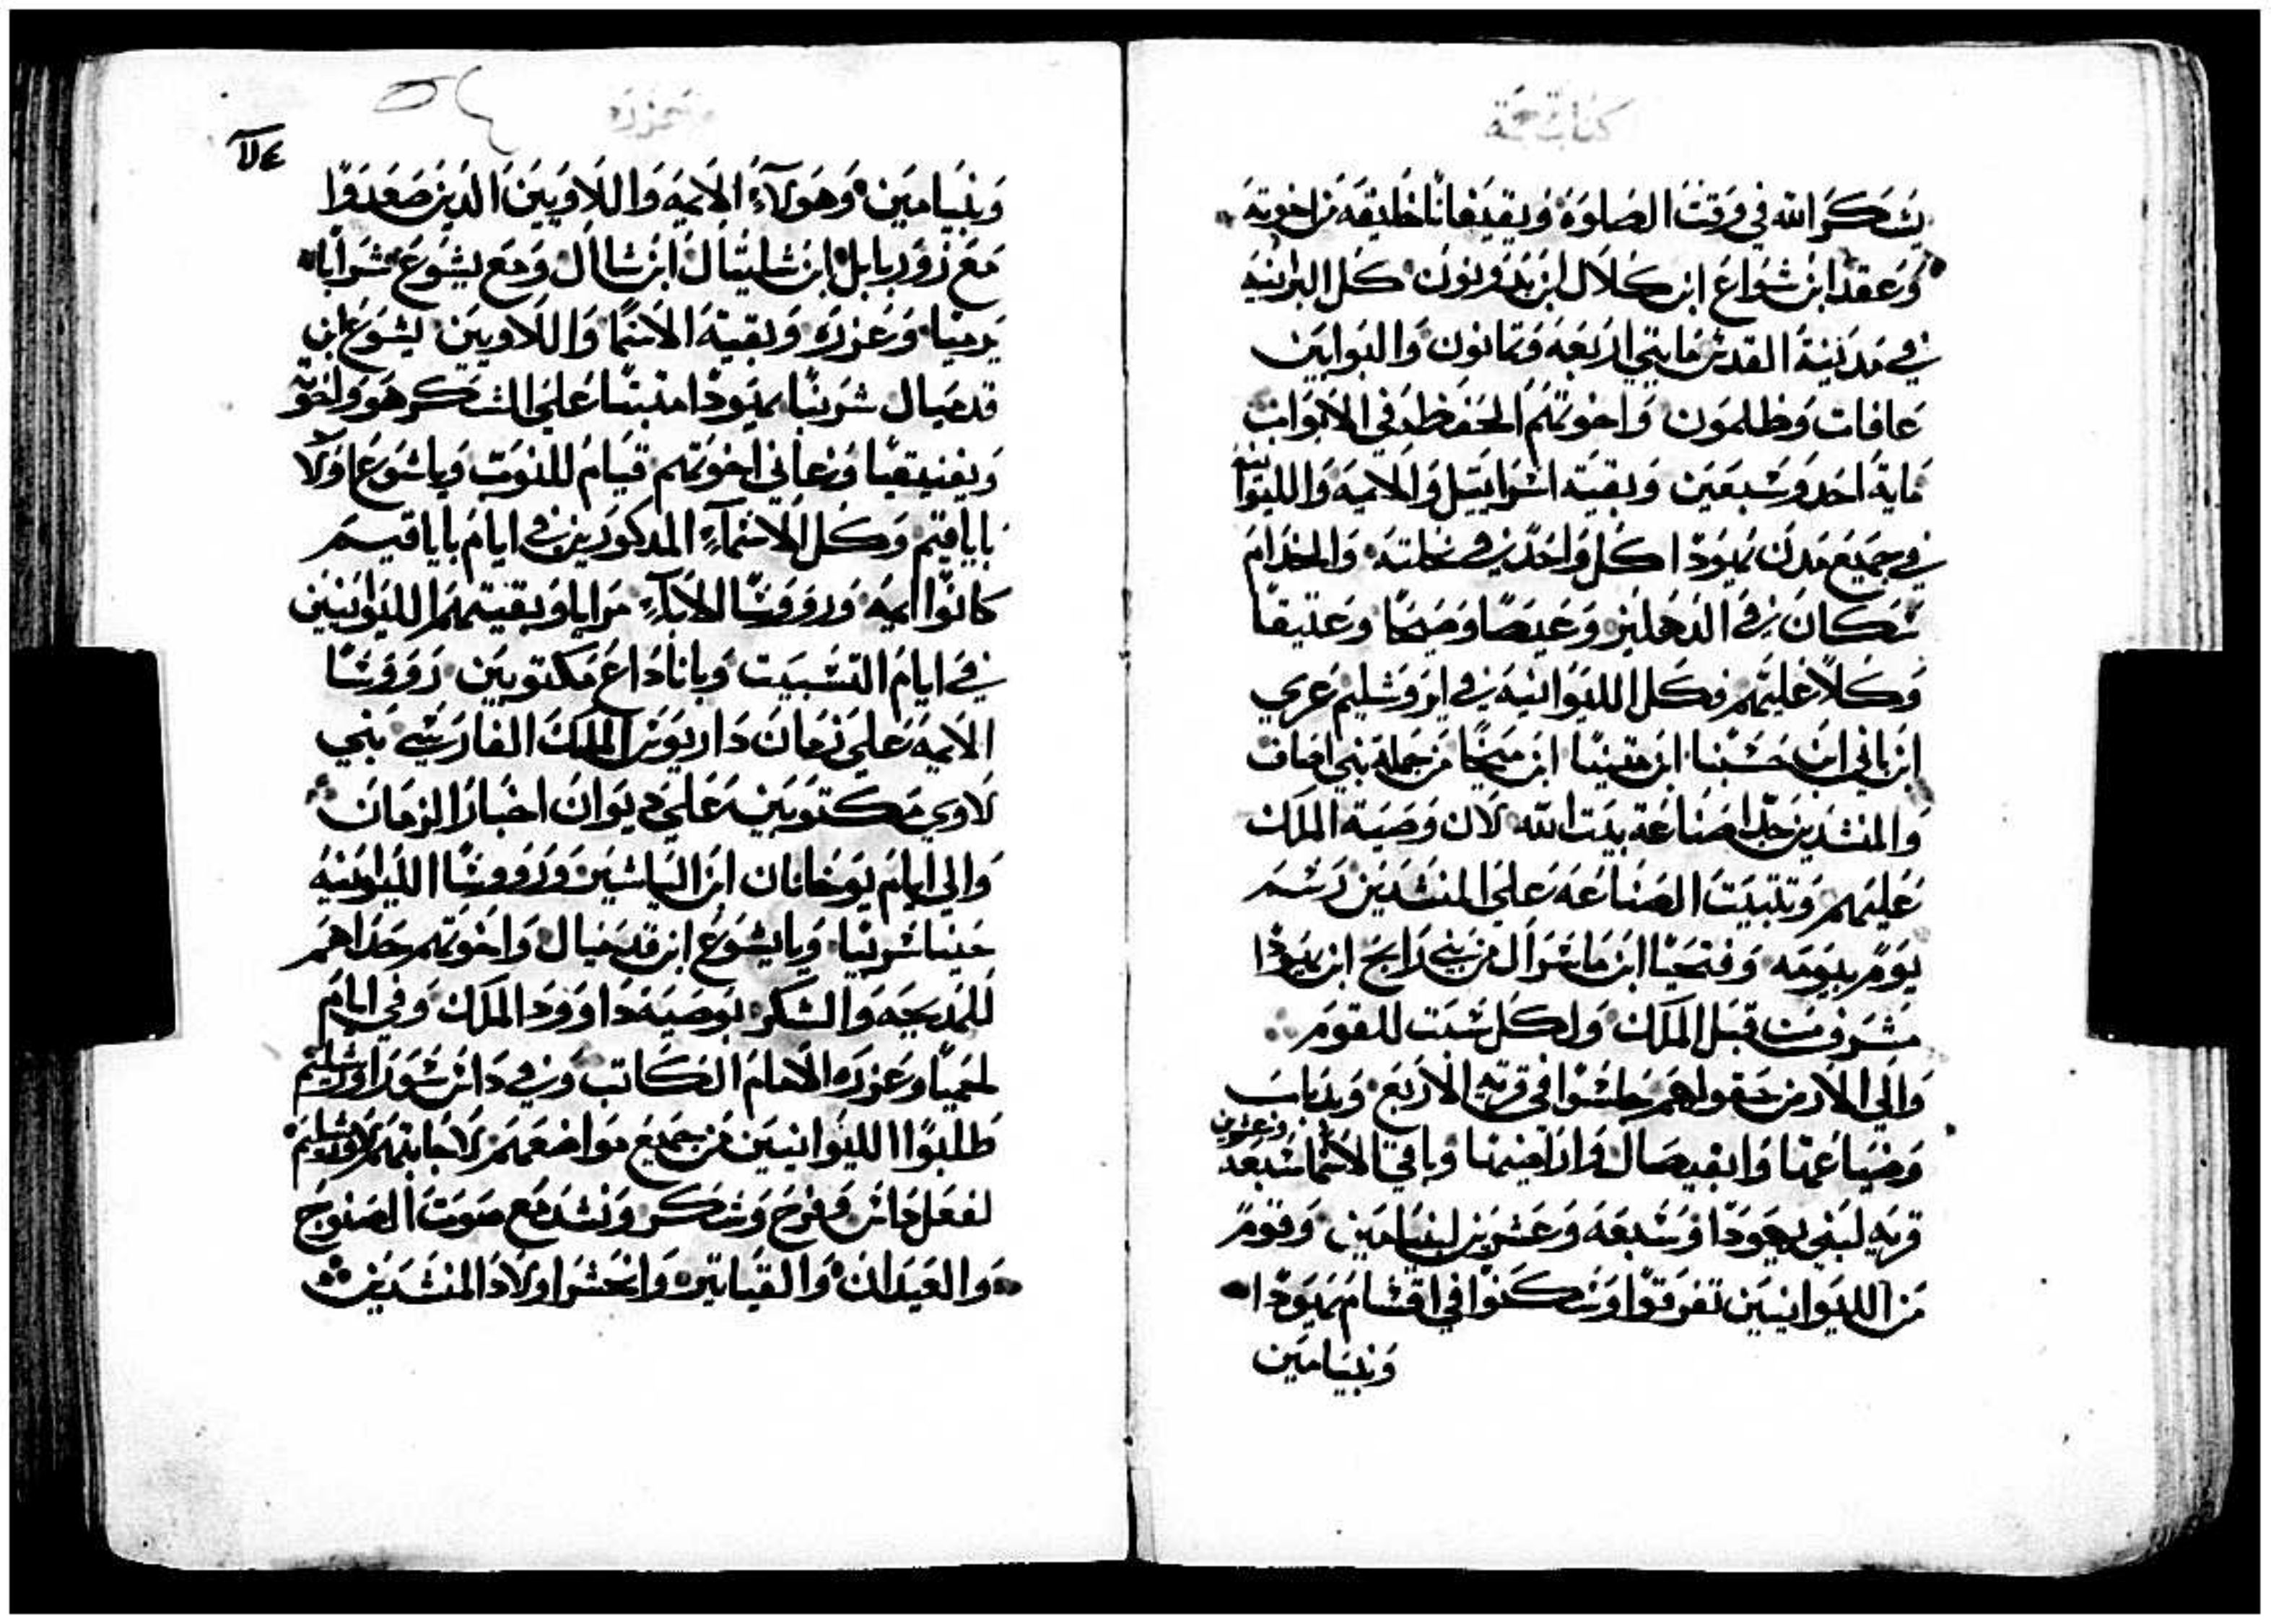 كتاب
يشكر الله في وقت الصلوة وبقيقانا خليفه من اخوته
وعقدا ابن شواع ابن كلال ابن يدوثون كل البرانيه
في مدينة القدس مايتي اربعه وتمانون والبوابين
عاقات وظلمون واخوتهم الحفظه في الابواب
مايه احد وسبعين وبقية اسراييل والايمه والليوانيه
في جميع مدن يهودا كل واحد في نحلته والخدام
سكان في الدهليز وعيصا وصيحا وعتيقا
وكلا عليهم وكل الليوانيه في اورشليم عزي
ابن باني ابن حسبنا ابن متينيا ابن ميخا من جملة بني اصاف
والمنشدين حدا صناعة بيت الله لان وصية الملك
عليهم وتتبيت الصناعه على المنشدين رسم
يوم بيومه وفتحيا ابن ماشزال من بني زابح ابن يهودا
مشرف من قبل الملك ولكل سبت للقوم
والى الارض حقولهم جلسوا في قرية الاربع وبدياب
وضياعها وابقيصال واراضيها وباقي الاسما سبعه وعشرين
قريه لبني يهودا وسبعه وعشرين لبنيامين وقوم
من الليوانيين تفرقوا وسكنوا في اقسام يهودا
وبنيامين
عزره
وبنيامين وهولاء الايمه واللاويين الذين صعدوا
مع زوربابل ابن شليتال ابن شاال ومع يشوع شرايا
يرميا وعزره وبقية الاسما واللاويين يشوع ابن
قدميال شربيا يهودا متنيا على الشكر هو واخوته
وبقيقيا وعاني اخوتهم قيام للنوب وياشوع اولا
ياياقيم وكل الاسماء المدكورين في ايام ياياقيم
كانوا ايمه وروووسا الاباء مرايا وبقيتهم الليوانيين
في ايام التشبيت وياناداع مكتوبين رووسا
الايمه على زمان داريوس الملك الفارسي بني
لاوي مكتوبين على ديوان اخبار الزمان
والى ايام يوخانان ابن الياشيب ورووسا الليوانيه
حبيا شربيا ويايشوع ابن قدميال واخوتهم حداهم
للمديحه والشكر بوصية داوود الملك وفي ايام
لحميا وعزره الامام الكاتب وفي داير سور اورشليم
طلبوا الليوانيين من جميع مواضعهم لاجابتهم لاورشليم
لفعل جاش وفرح وشكر ونشد مع صوت الصنوج
والعيدان والقيباتير وانحشروا اولاد المنشدين